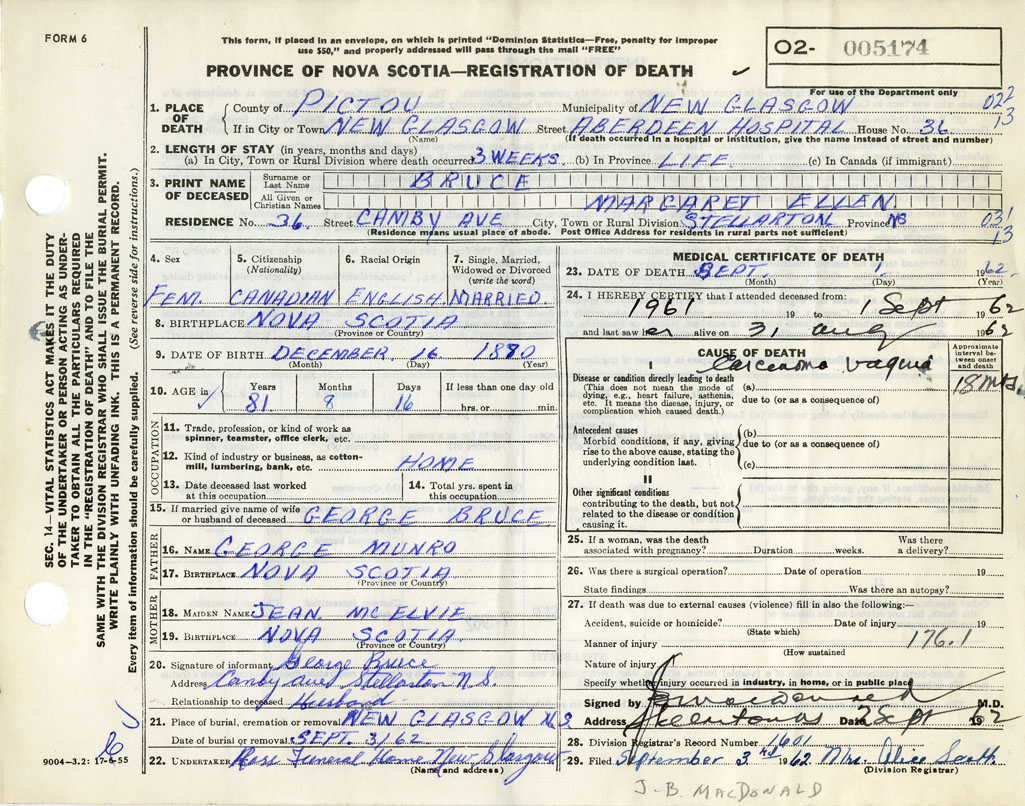 FORM 6
This form, if placed in an envelope, on which is printed "Dominion Statistics—Free, penalty for improper
use $50," and properly addressed will pass through the mail "FREE"
O2- 005174
PROVINCE OF NOVA SCOTIA—REGISTRATION OF DEATH
For use of the Department only
1. PLACE OF DEATH County of PICTOU Municipality of NEW GLASGOW 022
If in City or Town NEW GLASGOW Street ABERDEEN HOSPITAL House No. 36 13
(Name) (If death occurred in a hospital or institution, give the name instead of street and number)
2. LENGTH OF STAY (in years, months and days)
(a) In City, Town or Rural Division where death occurred 3 WEEKS (b) In Province LIFE (c) In Canada (if immigrant)
3. PRINT NAME OF DECEASED Surname or Last Name BRUCE
All Given or Christian Names MARGARET ELLEN
RESIDENCE No. 36 Street CAMBY AVE City, Town or Rural Division STELLARTON Province NS 031
(Residence means usual place of abode. Post Office Address for residents in rural parts not sufficient) 13
4. Sex 5. Citizenship 6. Racial Origin 7. Single, Married,
(Nationality) Widowed or Divorced
(write the word)
FEM. CANADIAN ENGLISH MARRIED
8. BIRTHPLACE NOVA SCOTIA
(Province or Country)
9. DATE OF BIRTH DECEMBER 16 1880
(Month) (Day) (Year)
10. AGE in Years Months Days If less than one day old
81 8 16 hrs. or min.
OCCUPATION
11. Trade, profession, or kind of work as
spinner, teamster, office clerk, etc.
12. Kind of industry or business, as cotton-
mill, lumbering, bank, etc. HOME
13. Date deceased last worked 14. Total yrs. spent in
at this occupation this occupation
15. If married give name of wife
or husband of deceased GEORGE BRUCE
FATHER
16. NAME GEORGE MUNRO
17. BIRTHPLACE NOVA SCOTIA
(Province or Country)
MOTHER
18. MAIDEN NAME JEAN MCELVIE
19. BIRTHPLACE NOVA SCOTIA
(Province or Country)
20. Signature of informant George Bruce
Address Canby ave Stellarton N.S.
Relationship to deceased Husband
21. Place of burial, cremation or removal NEW GLASGOW
Date of burial or removal SEPT. 3/62
22. UNDERTAKER Funeral Home New Glasgow
(Name and address)
MEDICAL CERTIFICATE OF DEATH
23. DATE OF DEATH SEPT. 1 1962
(Month) (Day) (Year)
24. I HEREBY CERTIFY that I attended deceased from:
1961 19 to 1 Sept 1962
and last saw her alive on 31 aug 1962
CAUSE OF DEATH
Approximate interval between onset and death
I
Disease or condition directly leading to death
(This does not mean the mode of
dying, e.g., heart failure, asthenia,
etc. It means the disease, injury, or
complication which caused death.)
(a) Carcinoma 18 mths
due to (or as a consequence of)
Antecedent causes
Morbid conditions, if any, giving
rise to the above cause, stating the
underlying condition last.
(b)
due to (or as a consequence of)
(c)
II
Other significant conditions
contributing to the death, but not
related to the disease or condition
causing it.
25. If a woman, was the death Was there
associated with pregnancy? Duration weeks. a delivery?
26. Was there a surgical operation? Date of operation 19
State findings Was there an autopsy?
27. If death was due to external causes (violence) fill in also the following:—
Accident, suicide or homicide? Date of injury 19
(State which)
Manner of injury 176.1
(How sustained)
Nature of injury
Specify whether injury occurred in industry, in home, or in public place
Signed by M.D.
Address Date 2 Sept 1962
28. Division Registrar's Record Number 1601
29. Filed September 3rd 1962 Mrs. Alice Scott
(Division Registrar)
J-B. MACDONALD
SEC. 14—VITAL STATISTICS ACT MAKES IT THE DUTY
OF THE UNDERTAKER OR PERSON ACTING AS UNDER-
TAKER TO OBTAIN ALL THE PARTICULARS REQUIRED
IN THE "REGISTRATION OF DEATH" AND TO FILE THE
SAME WITH THE DIVISION REGISTRAR WHO SHALL ISSUE THE BURIAL PERMIT.
WRITE PLAINLY WITH UNFADING INK. THIS IS A PERMANENT RECORD.
Every item of information should be carefully supplied. (See reverse side for instructions.)
9004-3.2: 17-6-55